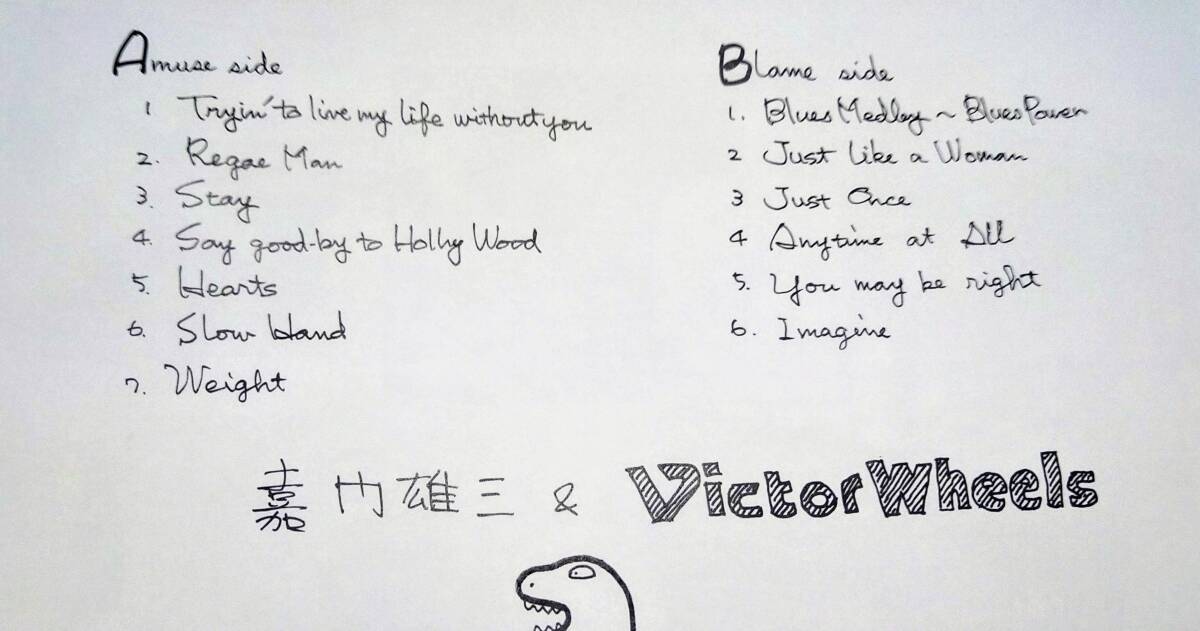 Amuse side
1 Tryin' to live my life without you
2. Regae Man
3. Stay
4. Say good-by to Holly Wood
5. Hearts
6. Slow Hand
7. Weight
Blame side
1. Blues Medley ~ Blues Power
2 Just like a Woman
3 Just Once
4 Anytime at All
5. You may be right
6. Imagine
嘉門雄三 & VictorWheels